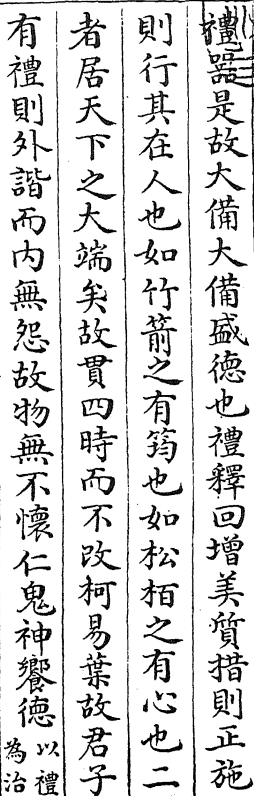 禮器是故大備大備盛德也禮釋回增美質措則正施
則行其在人也如竹箭之有筠也如松柏之有心也二
者居天下之大端矣故貫四時而不改柯易葉故君子
有禮則外諧而內無怨故物無不懷仁鬼神饗德以禮為治